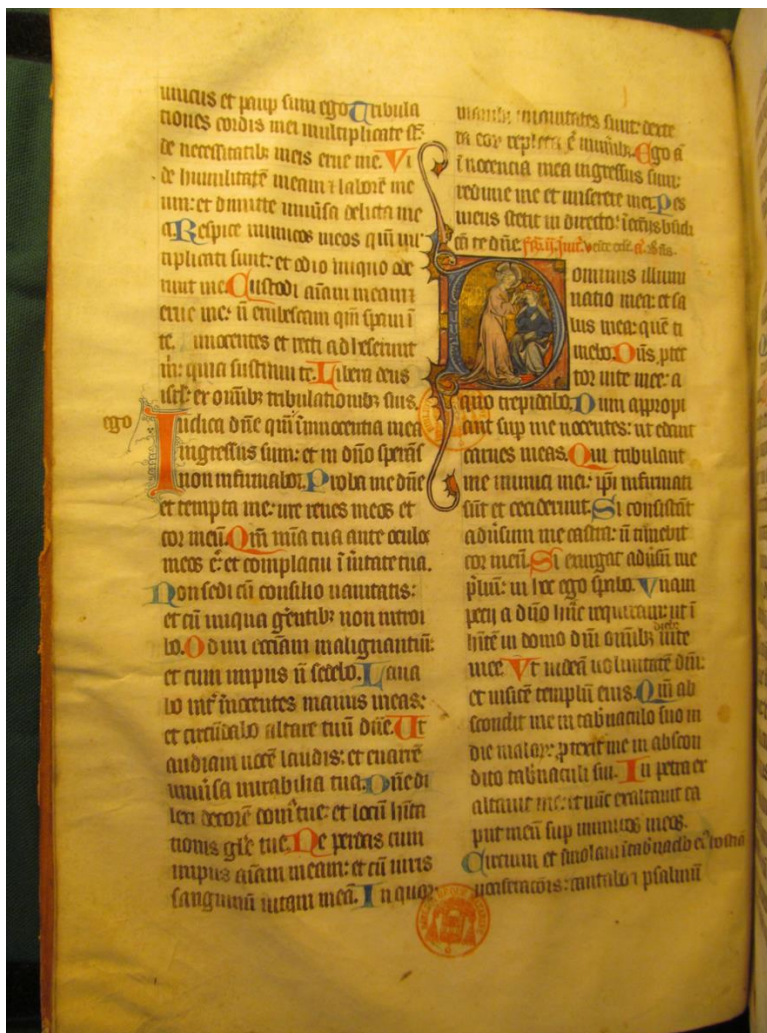 unicus et paup sum ego Tribula
tiones cordis mei multiplicate st:
de necessitatib; meis erue me. Vi
de humilitatē meam ⁊ laborē me
um: et dimitte uniūsa delicta me
a. Respice inimicos meos qm̄ mul
tiplicati sunt: et odio iniquo ode
runt me. Custodi aīam meam ⁊
erue me: n̄ erubescam qm̄ spaui ī
te. nnocentes et recti adheserunt
m̄: quia sustinui te. Libera deus
isrł: ex omīb; tribulationib; suis.
ego
Iudica dn̄e qm̄ ī innocentia mea
ingressus sum: et in dn̄o sperās
non infirmabor. Proba me dn̄e
et tempta me: ure renes meos et
cor meū. Qm̄ mīa tua ante oculos
meos ē: et complacui ī ūitate tua.
Non sedi cū consilio uanitatis:
et cū iniqua gerentib; non introi
bo. Odiui eccīam malignantiū:
et cum impiis n̄ sedebo. Laua
bo int̄ innocentes manus meas:
et circūdabo altare tuū dn̄e. Ut
audiam uocē laudis: et enarrē
uniūsa mirabilia tua. Dn̄e di
lexi decorē dom̄ tue: et locū hīta
tionis glē tue. Ne perdas cum
impiis aīam meam: et cū uiris
sanguinū uitam meā. In quor
manib; iniquitates sunt: dexte
ra eor repleta ē munib;. Ego ā
ī nocencia mea ingressus sum:
redime me et miserere mei. Pes
meus stetit in directo: ī eccīis bn̄di
cā te dn̄e.
Dominus illumi
natio mea: et sa
lus mea: quē ti
mebo. Dn̄s ptec
tor uite mee: a
quo trepidabo. Dum appropi
ant sup me nocentes: ut edant
carnes meas. Qui tribulant
me inimici mei: ip̄i infirmati
sūt et ceciderunt. Si consistāt
aduūsum me castra: n̄ timebit
cor meū. Si exurgat aduūsū me
p̄liū: in hoc ego spabo. Vnam
pecii a dn̄o hāc requiram: ut ī
hītē in domo dn̄i omīb; dieb; uite
mee. Vt uideā uoluntatē dn̄i:
et uisitē templū eius. Qm̄ ab
scondit me in tab̄naculo suo in
die malor: ptexit me in abscon
dito tab̄naculi sui. In petra ex
altauit me: et nūc exaltauit ca
put meū sup inimicos meos.
Circuiui et īmolaui ī tab̄naclo ei hostiā
uociferacōis: cantabo ⁊ psalmū